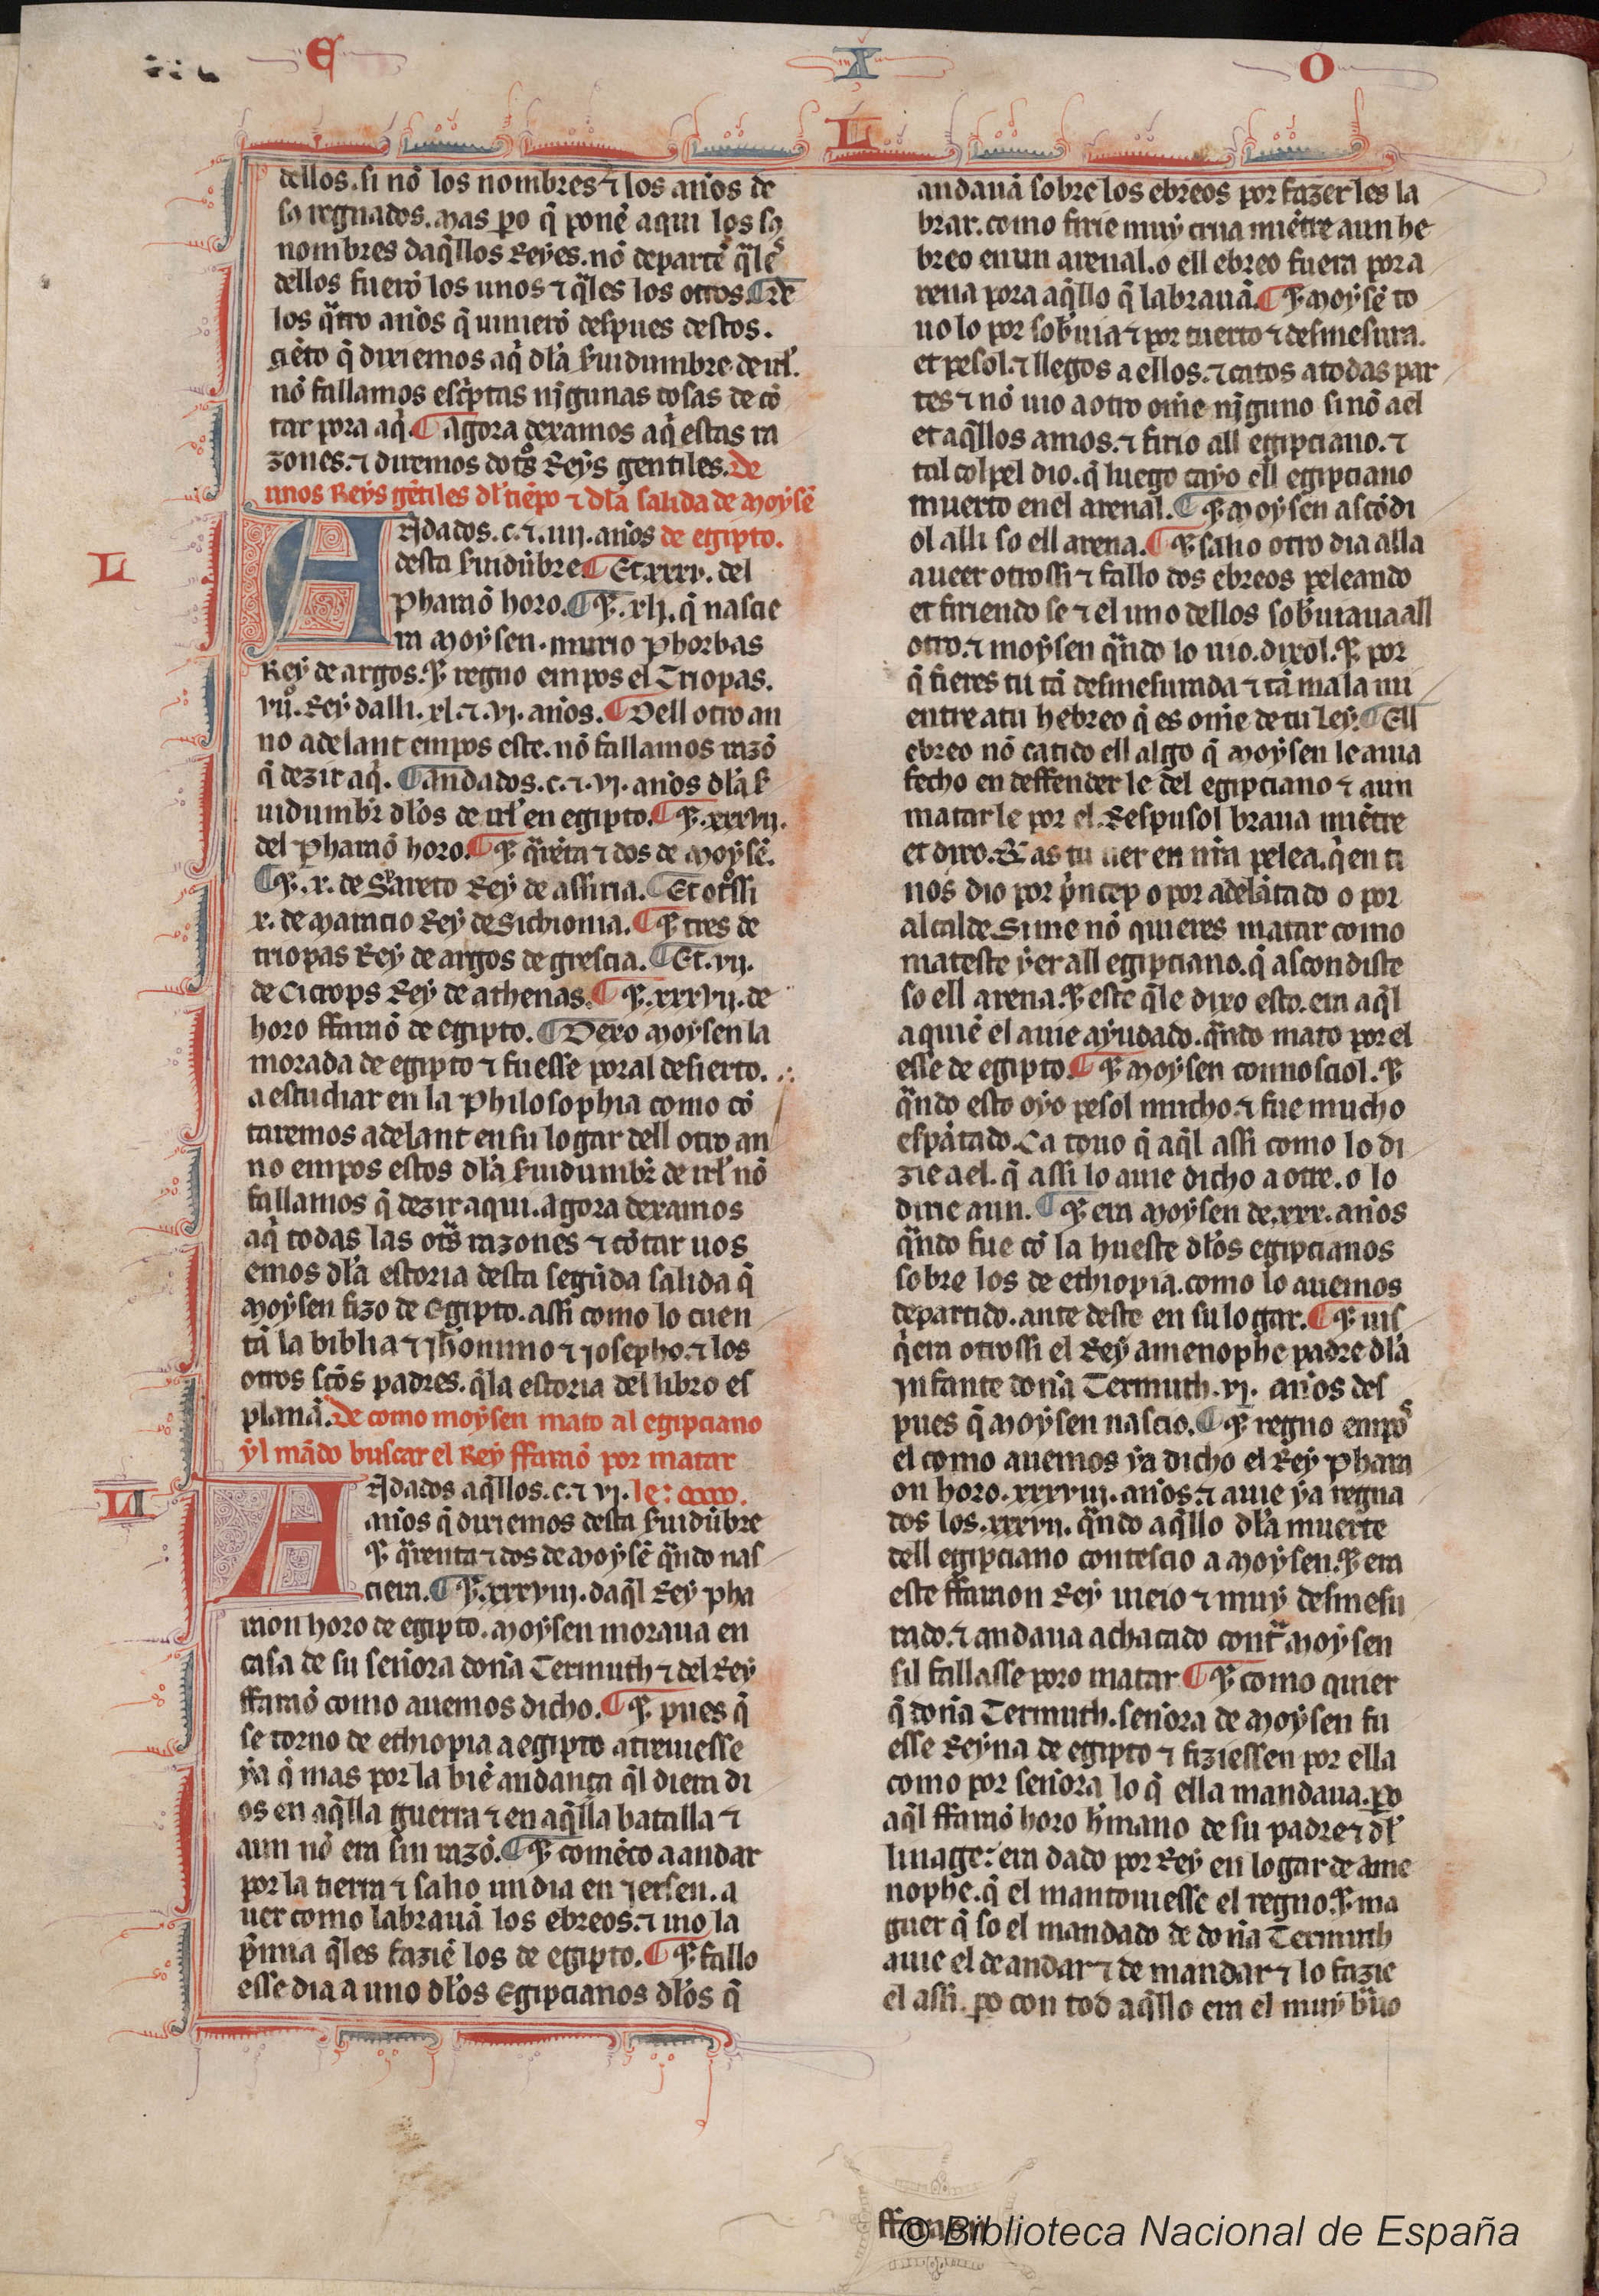 E X O
L
dellos. si nõ los nombres ⁊ los años de
so regnados. Mas ꝑo q̃ ponẽ aqui los so
nombres daq̃llos Reyes. nõ departẽ q̃les
dellos fuerõ los unos ⁊ q̃les los otros. ¶ de
los q̃tro años q̃ uinierõ despues destos.
ciẽto q̃ dixiemos aq̃ dla s̃uidumbre de irl̃.
nõ fallamos esc̃ptas nịgunas cosas de cõ
tar pora aq̃. ¶ agora dexamos aq̃ estas ra
zones. ⁊ diremos dot̃s Reys gentiles. De
unos Reys gẽtiles dl tiẽpo ⁊ dla salida de Moysẽ
de egipto.
L
Andados. c. ⁊. iiij. años
desta s̃uidũbre ¶ Et. xxxv. del
Pharaõ horo. ¶ ⁊. xlj. q̃ nascie
ra Moysen. murio Phorbas
Rey de argos. ⁊ regno empos el Triopas.
vij.º Rey dalli. xl. ⁊. vj. años. ¶ Dell otro an
no adelant empos este. nõ fallamos razõ
q̃ dezir aq̃. ¶ andados. c. ⁊. vj. años dla s̃
uidumbr̃ dlos de irl̃ en egipto. ¶ ⁊. xxxvij.
del Pharaõ horo. ¶ ⁊ q̃rẽta ⁊ dos de Moysẽ.
¶ ⁊. x. de Spareto Rey de assiria. ¶ Et ot̃ssi
x. de Maracio Rey de Sichionia. ¶ ⁊ tres de
triopas Rey de argos de grescia. ¶ Et. vij.
de Cicrops Rey de athenas. ¶ ⁊. xxxvij. de
horo ffaraõ de egipto. ¶ Dexo Moysen la
morada de egipto ⁊ fuesse poral desierto.
a estudiar en la Philosophia como cõ
taremos adelant en su logar dell otro an
no empos estos dla s̃uidumbr̃ de irl̃ nõ
fallamos q̃ dezir aqui. agora dexamos
aq̃ todas las ot̃s razones ⁊ cõtar uos
emos dla estoria desta segũda salida q̃
Moysen fizo de Egipto. assi como lo cuen
tã la biblia ⁊ jh̃onimo ⁊ josepho. ⁊ los
otros sc̃os padres. q̃la estoria del libro es
planã. De como moysen mato al egipciano
yl mãdo buscar el Rey ffaraõ por matar
le:
LI
Andados aq̃llos. c. ⁊ vj.
años q̃ dixiemos desta s̃uidũbre
⁊ q̃renta ⁊ dos de Moysẽ q̃ndo nas
ciera. ¶ ⁊. xxxviij. daq̃l Rey pha
raon horo de egipto. Moysen moraua en
casa de su señora doña Termuth ⁊ del Rey
ffaraõ como auemos dicho. ¶ ⁊ pues q̃
se torno de ethiopia a egipto atreuiesse
ya q̃ mas por la biẽ andança q̃l diera di
os en aq̃lla guerra ⁊ en aq̃lla batalla ⁊
aun nõ era sin razõ. ¶ ⁊ comẽço a andar
por la tierra ⁊ salio un dia en jersen. a
uer como labrauã los ebreos. ⁊ uio la
p̃mia q̃les fazíẽ los de egipto. ¶ ⁊ fallo
esse dia a uno dlos Egipcianos dlos q̃
andauã sobre los ebreos por fazer les la
brar. como firie muy crua miẽtre a un he
breo en un arenal. o ell ebreo fuera por a
rena pora aq̃llo q̃ labrauã. ¶ ⁊ Moysẽ to
uo lo por sob̃uia ⁊ por tuerto ⁊ desmesura.
et pesol. ⁊ llegos a ellos. ⁊ catos a todas par
tes ⁊ nõ uio a otro om̃e nịguno si nõ a el
et aq̃llos amos. ⁊ firio all egipciano. ⁊
tal colpel dio. q̃ luego cayo ell egipciano
muerto en el arenal. ¶ ⁊ Moysen ascõdi
ol alli so ell arena. ¶ ⁊ salio otro dia alla
a ueer otrossi ⁊ fallo dos ebreos peleando
et firiendo se ⁊ el uno dellos sob̃uiaua all
otro. ⁊ moysen q̃ndo lo uio. dixol. ⁊ por
q̃ fieres tu tã desmesurada ⁊ tã mala mi
entre a tu hebreo q̃ es om̃e de tu ley. ¶ Ell
ebreo nõ catãdo ell algo q̃ Moysen le auia
fecho en deffender le del egipciano ⁊ aun
matarle por el. Respusol braua miẽtre
et dixo. ⁊ as tu uer en nr̃a pelea. q̃en ti
nos dio por p̃ncep o por adelãtado o por
alcalde. Si me nõ quieres matar como
mateste yer all egipciano. q̃ ascondiste
so ell arena. ⁊ este q̃le dixo esto. era aq̃l
a quiẽ el auie ayudado. q̃ndo mato por el
esse de egipto. ¶ ⁊ Moysen connosciol. ⁊
q̃ndo esto oyo pesol mucho. ⁊ fue mucho
espãtado. Ca touo q̃ aq̃l assi como lo di
zie a el. q̃ assi lo auie dicho a otre. o lo
dirie aun. ¶ ⁊ era Moysen de. xxx. años
q̃ndo fue cõ la hueste dlos egipcianos
sobre los de ethiopia. como lo auemos
departido. ante deste en su logar. ¶ ⁊ uis
q̃era otrossi el Rey amenophe padre dla
ynfante doña Termuth. vj. años des
pues q̃ Moysen nascio. ¶ ⁊ regno empos
el como auemos ya dicho el Rey Phara
on horo. xxxviij. años. ⁊ auie ya regna
dos los. xxxvij. q̃ndo aq̃llo dla muerte
dell egipciano contescio a Moysen. ⁊ era
este ffaraon Rey uieio ⁊ muy desmesu
rado. ⁊ andaua achacado cont̃ Moysen
sil fallasse poro matar. ¶ ⁊ como quier
q̃ doña Termuth. señora de Moysen fu
esse Reyna de egipto ⁊ fiziessen por ella
como por señora lo q̃ ella mandaua. ꝑo
aq̃l ffaraõ horo h̃mano de su padre ⁊ dl
linage: era dado por Rey en logar de ame
nophe. q̃ el mantouiesse el regno. ⁊ ma
guer q̃ so el mandado de doña Termuth
auie el de andar ⁊ de mandar ⁊ lo fazie
el assi. ꝑo con tod aq̃llo era el muy b̃uo
ffaraon
© Biblioteca Nacional de España